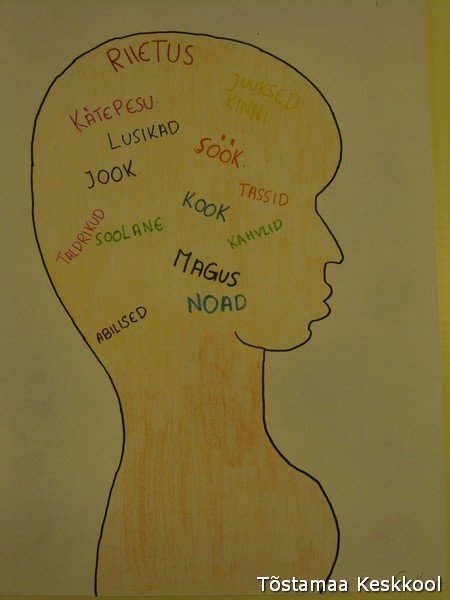 RIIETUS
JUUKSED
KINNI
KÄTEPESU
LUSIKAD
SÖÖK
JOOK
TASSID
KOOK
TALDRIKUD
SOOLANE
KAHVLID
MAGUS
NOAD
ABILISED
Tõstamaa Keskkool